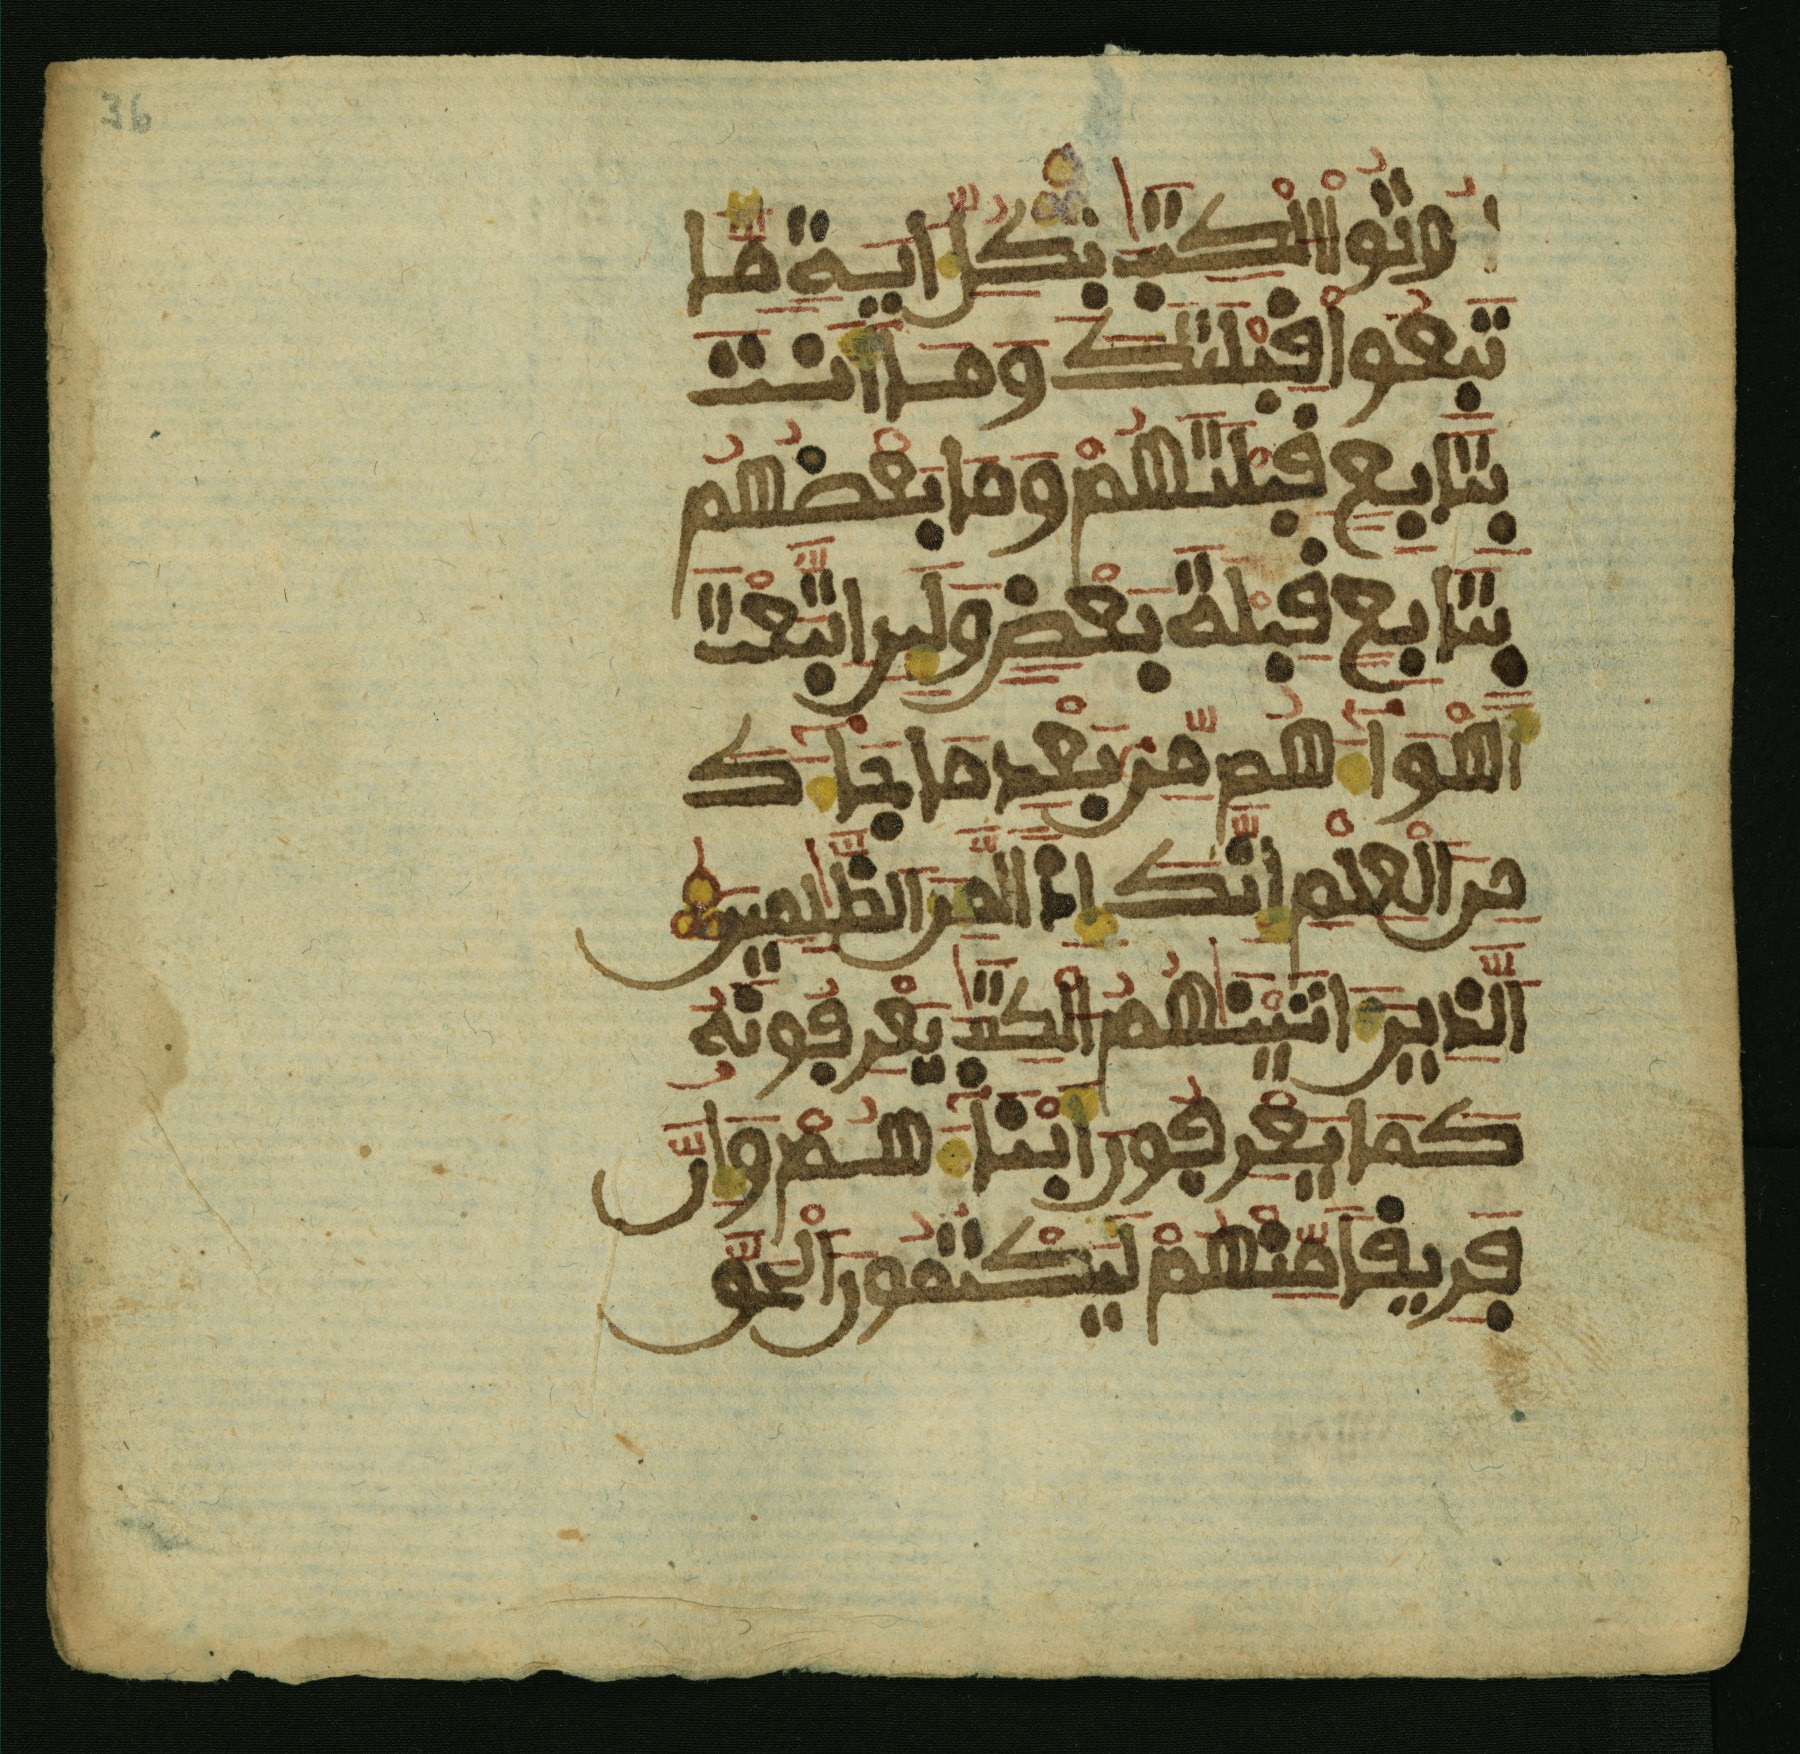 36
اُوتُواْ الْكِتَٰبَ بِكُلِّ ءَايَةٍ مَّا
تَبِعُواْ قِبْلَتَكَ وَمَا أَنتَ
بِتَابِعٍ قِبْلَتَهُمْ وَمَا بَعْضُهُم
بِتَابِعٍ قِبْلَةَ بَعْضٍ وَلَئِنِ اتَّبَعْتَ
أَهْوَآءَهُم مِّنۢ بَعْدِ مَا جَآءَكَ
مِنَ الْعِلْمِ إِنَّكَ إِذًا لَّمِنَ الظَّٰلِمِينَ
الَّذِينَ ءَاتَيْنَٰهُمُ الْكِتَٰبَ يَعْرِفُونَهُ
كَمَا يَعْرِفُونَ أَبْنَآءَهُمْ وَإِنَّ
فَرِيقًا مِّنْهُمْ لَيَكْتُمُونَ الْحَقَّ